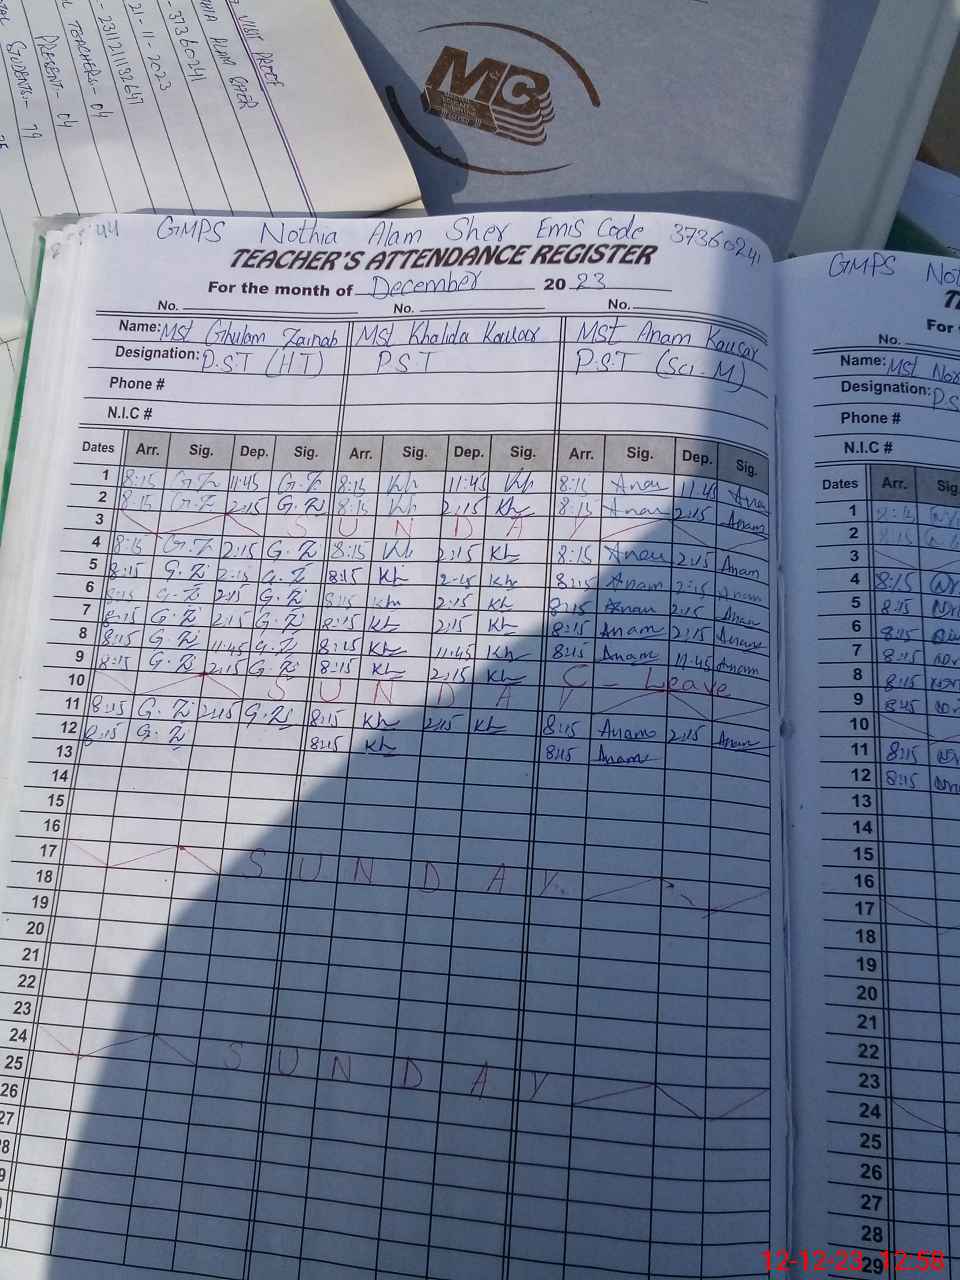 VISIT PROOF
ALAM SHER
37360241
21-11-2023
2311211132647
TEACHERS:- 04
PRESENT:- 04
STUDENTS:- 79
M&C
GMPS Nothia Alam Sher Emis Code 37360241
TEACHER'S ATTENDANCE REGISTER
For the month of December 2023
No. No. No.
Name: Mst Ghulam Zainab Mst Khalida Kousar Mst Anam Kousar
Designation: P.S.T (HT) P.S.T P.S.T (Sci-M)
Phone #
N.I.C #
Dates Arr. Sig. Dep. Sig. Arr. Sig. Dep. Sig. Arr. Sig. Dep. Sig.
1 8:15 G.Z 11:45 G.Z 8:15 Kh 11:45 Kh 8:15 Anam 11:45 Anam
2 8:15 G.Z 2:15 G.Z 8:15 Kh 2:15 Kh 8:15 Anam 2:15 Anam
3 SUNDAY
4 8:15 G.Z 2:15 G.Z 8:15 Kh 2:15 Kh 8:15 Anam 2:15 Anam
5 8:15 G.Z 2:15 G.Z 8:15 Kh 2:15 Kh 8:15 Anam 2:15 Anam
6 8:15 G.Z 2:15 G.Z 8:15 Kh 2:15 Kh 8:15 Anam 2:15 Anam
7 8:15 G.Z 2:15 G.Z 8:15 Kh 2:15 Kh 8:15 Anam 2:15 Anam
8 8:15 G.Z 11:45 G.Z 8:15 Kh 11:45 Kh 8:15 Anam 11:45 Anam
9 8:15 G.Z 2:15 G.Z 8:15 Kh 2:15 Kh C - Leave
10 SUNDAY
11 8:15 G.Z 2:15 G.Z 8:15 Kh 2:15 Kh 8:15 Anam 2:15 Anam
12 8:15 G.Z 8:15 Kh 8:15 Anam
13
14
15
16
17 SUNDAY
18
19
20
21
22
23
24 SUNDAY
25
26
27
GMPS
For
No.
Name: Mst
Designation: P.S
Phone #
N.I.C #
Dates Arr. Sig
1 8:15
2 8:15
3
4 8:15
5 8:15
6 8:15
7 8:15
8 8:15
9 8:45
10
11 8:15
12 8:15
13
14
15
16
17
18
19
20
21
22
23
24
25
26
27
28
29
12-12-23 12:58